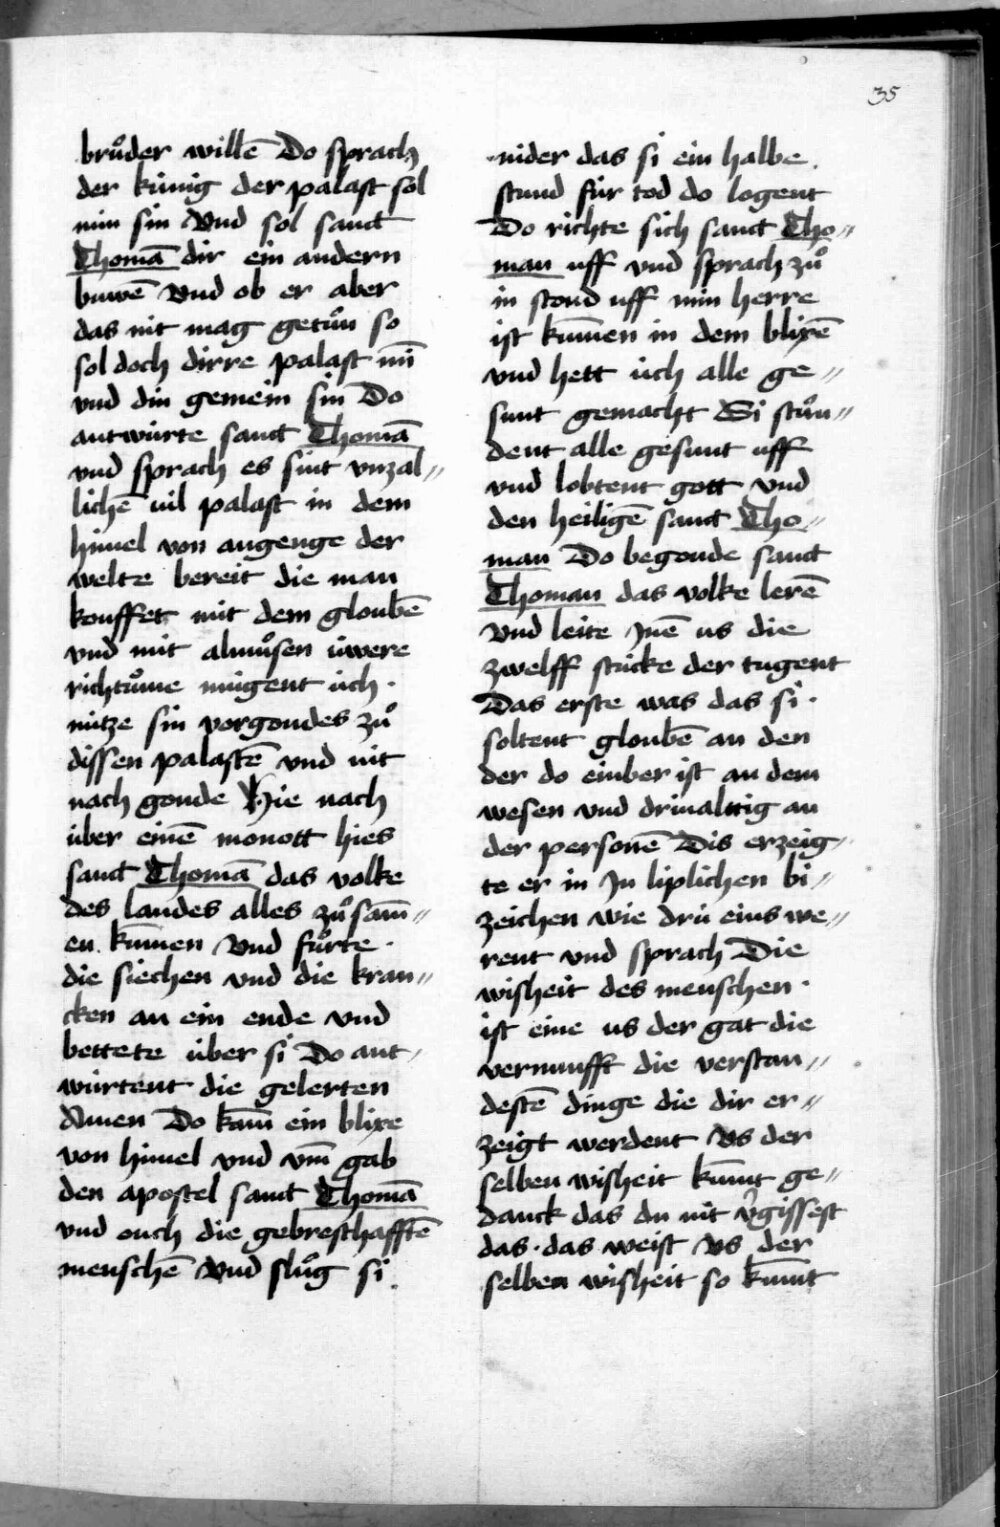 35
bruͦder willē Do sprach
der kúnig der palast sol
min sin Vnd sol sanct
Thomā dir ein andern
buwē Vnd ob er aber
das nit mag getuͦn so
sol doch dirre palast mī
vnd din gemein sin Do
antwúrte sanct Thomā
vnd sprach es sint vnzal„
lichē vil palast in dem
himel von angenge der
welte bereit die man
kouffet mit dem gloubē
vnd mit almuͦsen úwere
richtuͦme múgent úch
nútze sin vorgondes zuͦ
dissen palastē vnd nit
nach gonde Hie nach
über einē monott hies
sanct Thomā das volke
des landes alles zuͦ sam̄„
en kum̄en Vnd fuͦrte
die siechen vnd die kran„
cken an ein ende vnd
bettete über si Do ant„
würtent die gelerten
Amen Do kam̄ ein blixe
von himel vnd vm̄gab
den apostel sanct Thomā
vnd ouch die gebresthafftē
menschē Vnd sluͦg si
nider das si ein halbe
stund für tod do logent
Do richte sich sanct Tho„
man uff vnd sprach zuͦ
in stond uff min herre
ist kum̄en in dem blixē
vnd hett úch alle ge„
sunt gemacht Si stuͦn„
dent alle gesunt uff
vnd lobtent gott vnd
den heiligē sanct Tho„
man Do begonde sanct
Thoman das volke lerē
Vnd leite Jnē us die
zwelff stúcke der tugent
Das erste was das si
soltent gloubē an den
der do einber ist an dem
wesen vnd driualttig an
der personē Dis erzeig„
te er in Jn liplichen bi„
zeichen wie drú eins we„
rent vnd sprach Die
wisheit des menschen
ist eine us der gat die
vernunfft die verstan„
destē dinge die dir er„
zeigt werdent Vs der
selben wisheit kum̄t ge„
danck das du nit v̾gissest
das das weist Vs der
selben wisheit so kum̄t